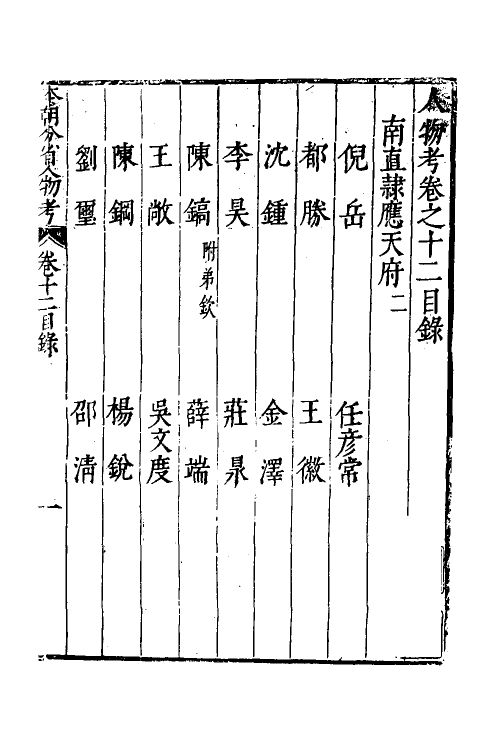 人物考卷之十二目錄
南直隷應天府二
倪岳 任彥常
都勝 王徽
沈鍾 金澤
李昊 莊㫤
陳鎬附弟欽 薛端
王敞 吳文度
陳鋼 楊銳
劉璽 邵淸
本朝分省人物考 卷十二目錄 一